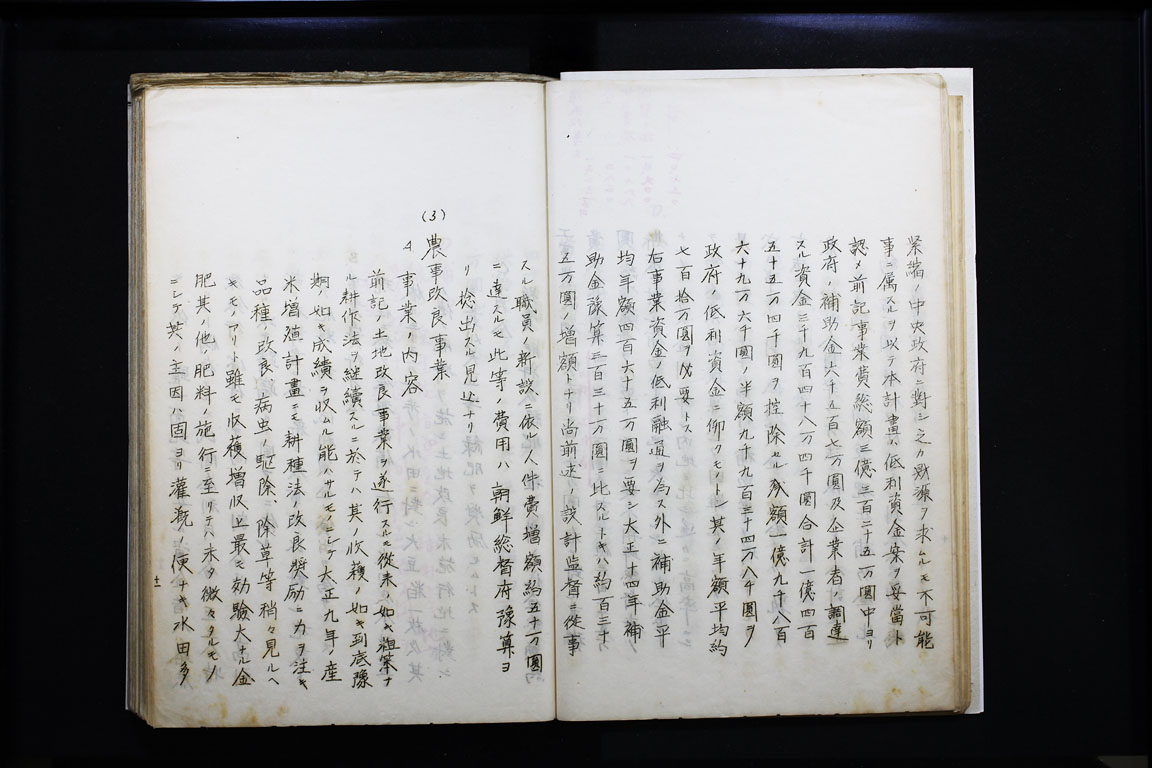 緊縮ノ中央政府ニ對シ之カ財源ヲ求ムルモ不可能
事ニ属スルヲ以テ本計畫ハ低利資金案ヲ妥當ト
認メ前記事業費総額三億三百二十五万圓中ヨリ
政府ノ補助金六千五百七万圓及企業者ノ調達
スル資金三千九百四十八万四千圓合計一億四百
五十五万四千圓ヲ控除セル残額一億九千八百
六十九万六千圓ノ半額九千九百三十四万八千圓ヲ
政府ノ低利資金ニ仰クモノトシ其ノ年額平均約
七百拾万圓ヲ必要トス
右事業資金ノ低利融通ヲ為ス外ニ補助金平
均年額四百六十五万圓ヲ要シ大正十四年補
助金豫算三百三十万圓ニ比スルトキハ約百三十
五万圓ノ増額トナリ尚前述ノ設計監督ニ從事
スル職員ノ新設ニ依ル人件費増額約五十万圓
ニ達スルモ此等ノ費用ハ朝鮮総督府豫算ヨ
リ捻出スル見込ナリ
(3) 農事改良事業
A 事業ノ内容
前記ノ土地改良事業ヲ遂行スルモ從來ノ如キ粗笨ナ
ル耕作法ヲ継續スルニ於テハ其ノ收穫ノ如キ到底豫
期ノ如キ成績ヲ收ムル能ハサルモノニシテ大正九年ノ産
米増殖計畫ニモ耕種法ノ改良奨励ニ力ヲ注キ
品種ノ改良病虫ノ駆除、除草等稍々見ルヘ
キモノアリト雖モ收穫増收上最モ効驗大ナル金
肥其ノ他ノ肥料ノ施行ニ至リテハ未タ微々タルモノ
ニシテ其ノ主因ハ固ヨリ灌漑ノ便ナキ水田多ク
十一